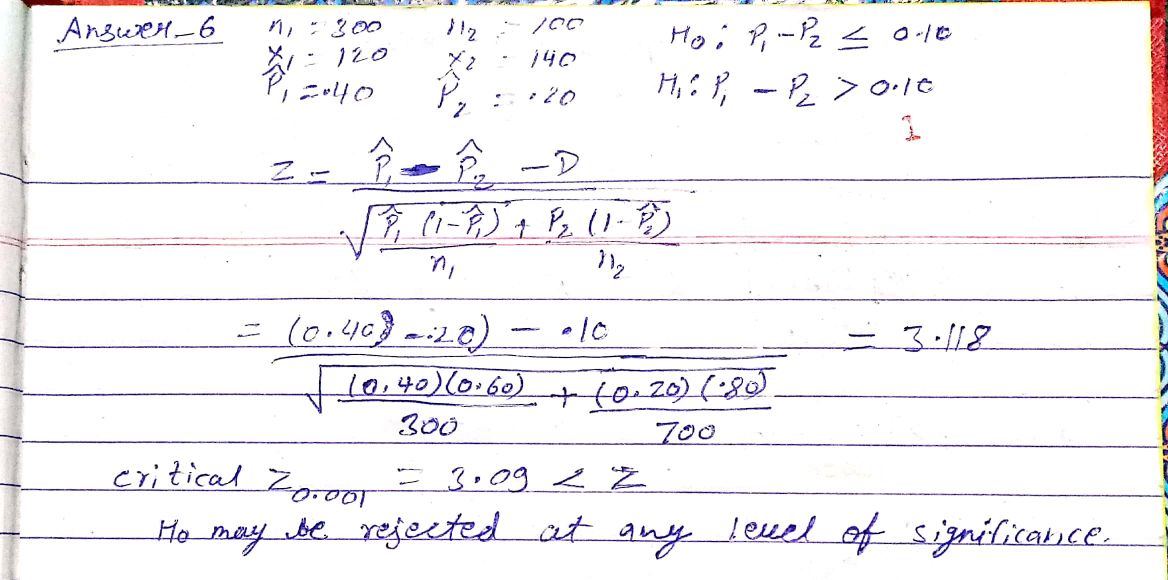 Answer-6 n₁ = 300 n₂ = 700 H₀: P₁ - P₂ ≤ 0.10
x₁ = 120 x₂ = 140
P̂₁ = .40 P̂₂ = .20 H₁: P₁ - P₂ > 0.10
1
Z = P̂₁ - P̂₂ - D
√ P̂₁ (1-P̂₁) + P₂ (1-P̂₂)
n₁ n₂
= (0.40 - .20) - .10 = 3.118
√ (0.40)(0.60) + (0.20)(.80)
300 700
critical Z₀.₀₀₁ = 3.09 < Z
H₀ may be rejected at any level of significance.